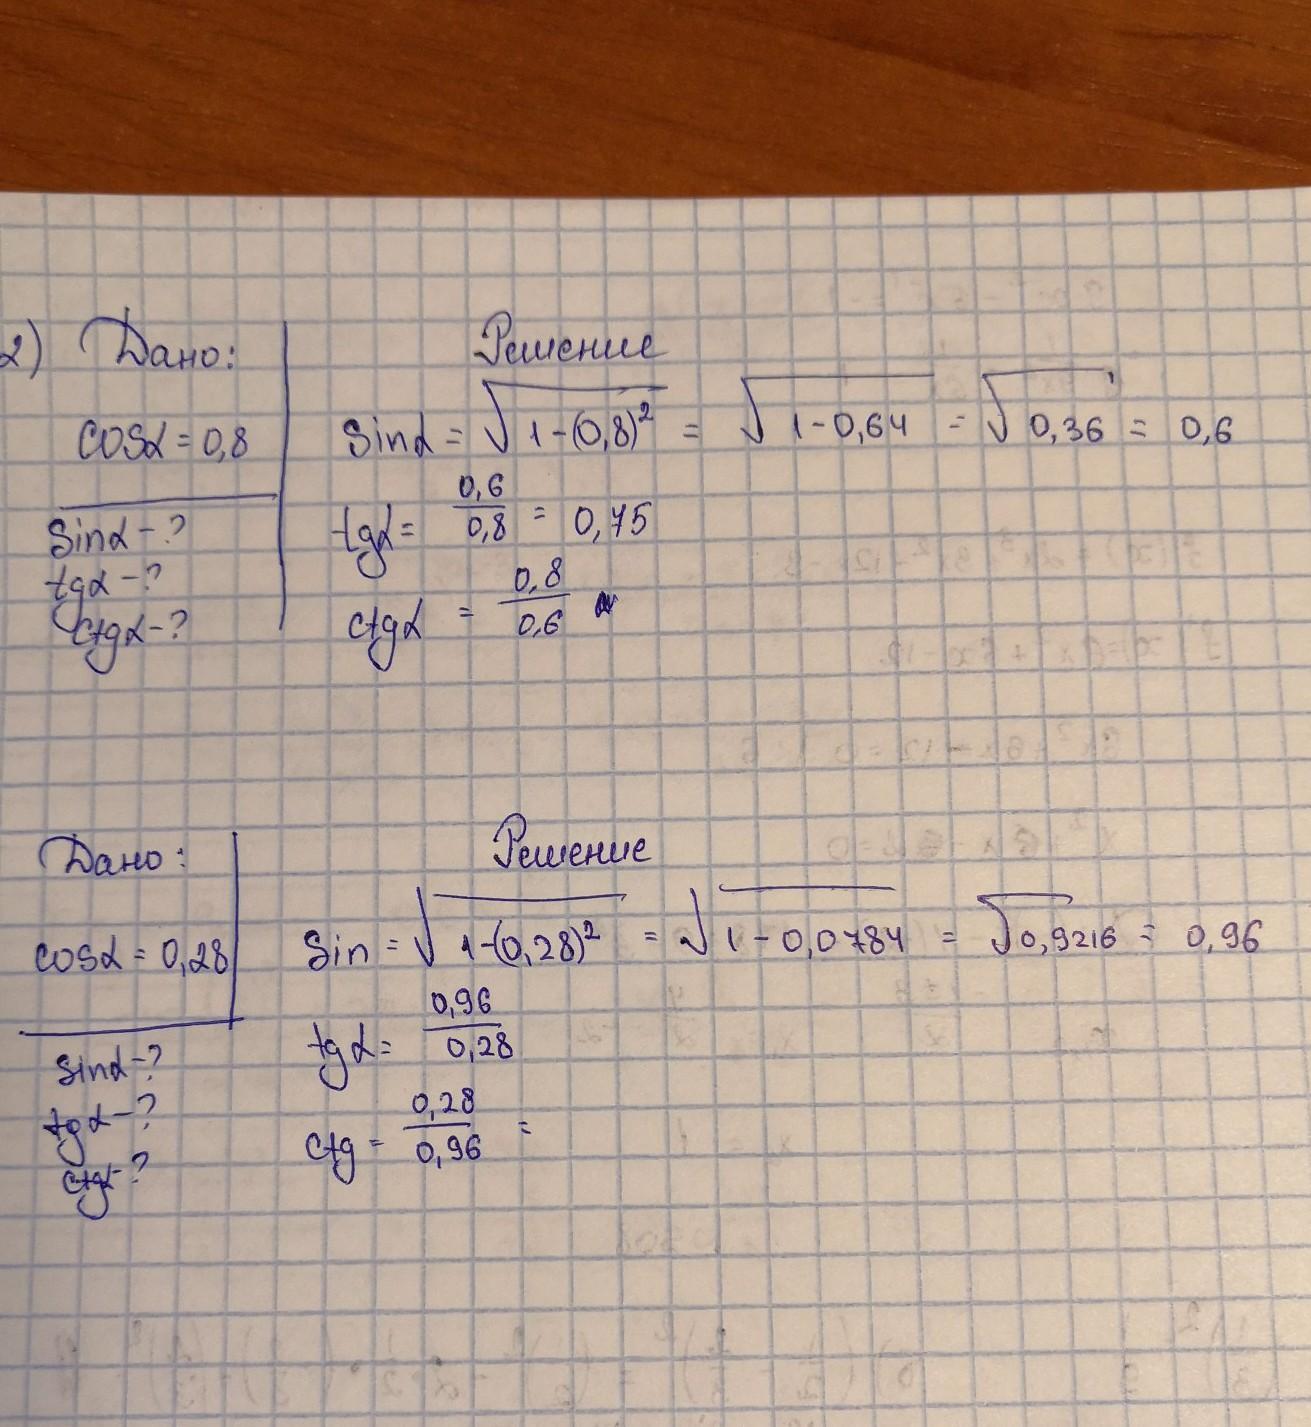 2) Дано:
cosα = 0,8
sinα - ?
tgα - ?
ctgα - ?
Решение
sinα = √1-(0,8)² = √1-0,64 = √0,36 = 0,6
tgα = 0,6/0,8 = 0,75
ctgα = 0,8/0,6
Дано:
cosα = 0,28
sinα - ?
tgα - ?
ctgα - ?
Решение
sin = √1-(0,28)² = √1-0,0784 = √0,9216 = 0,96
tgα = 0,96/0,28
ctg = 0,28/0,96 =